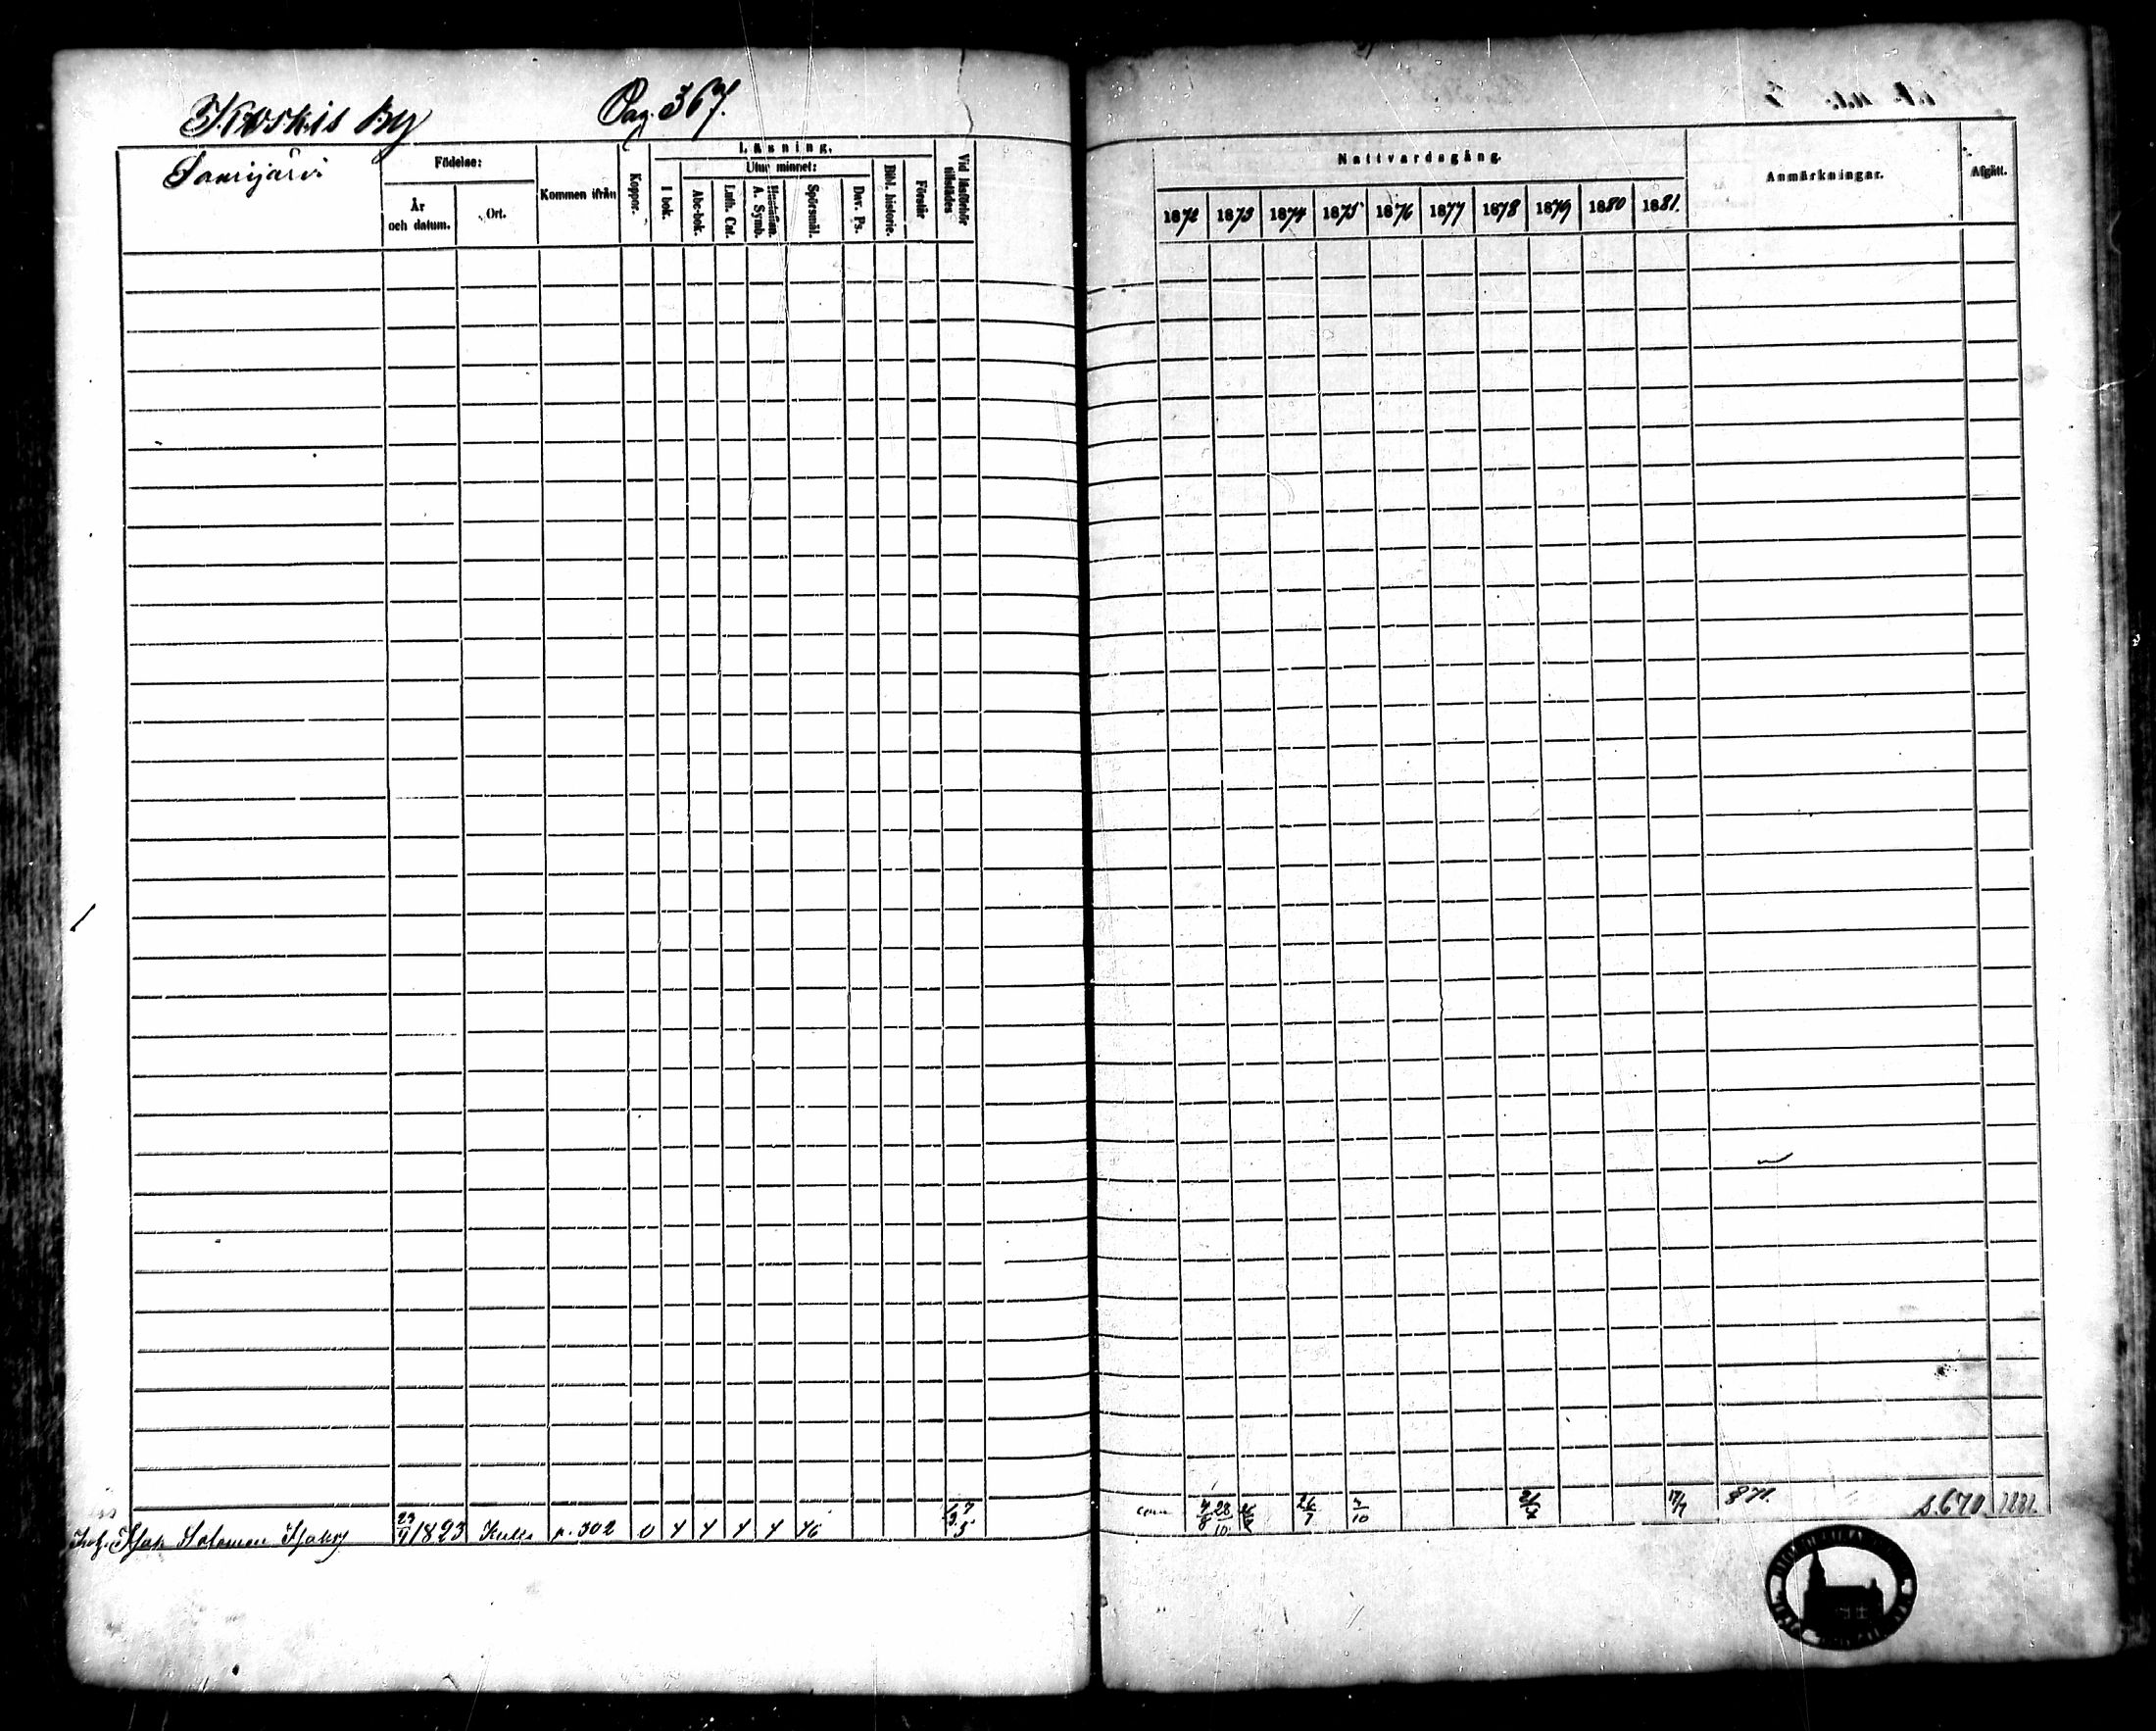 Koskis By Pag. 367.
Saarijärvi
Födelse:
År och datum.
Ort.
Kommen ifrån
Koppor.
Läsning.
I bok.
Utur minnet:
Abc-bok.
Luth. Cat.
Hustaflan. A. Symb.
Spörsmål.
Dav. Ps.
Bibl. historie.
Förstår
Vid läsförhör tillstädes
Nattvardsgång.
1872 1873 1874 1875 1876 1877 1878 1879 1880 1881.
Anmärkningar.
Afgått.
Salomon 23/9 1823 p. 302 0 4 4 4 4 26/7 7/10 17/7 s. 670 1882